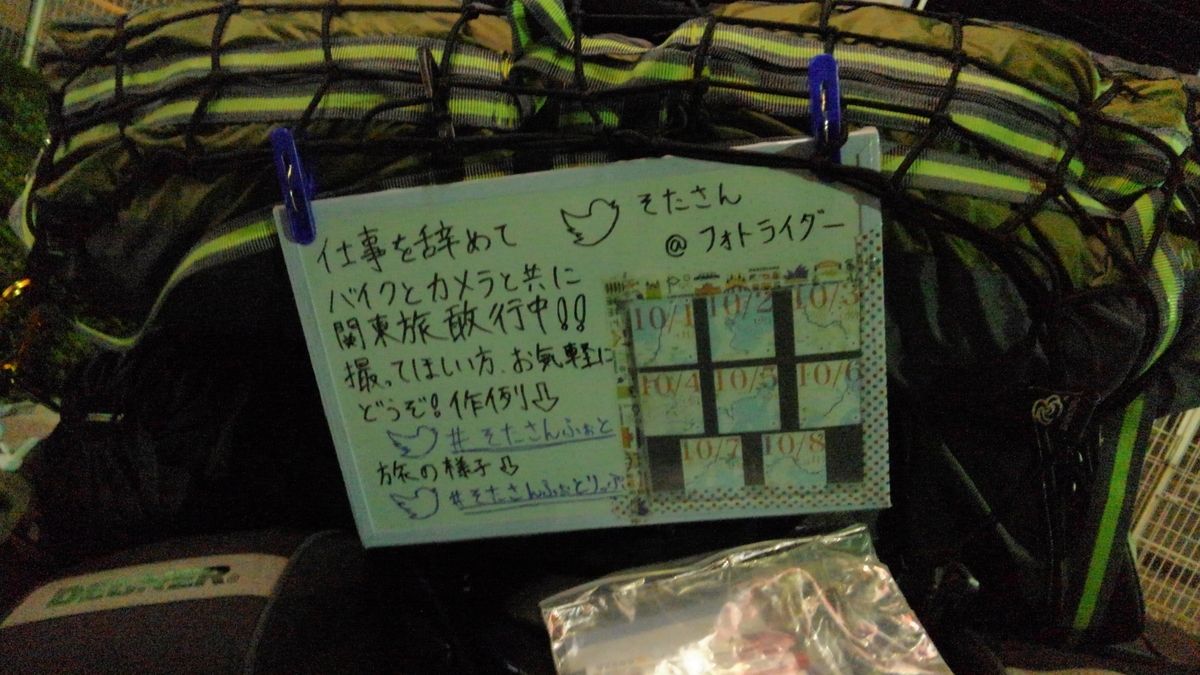 そたさん
@ フォトライダー
仕事を辞めて
バイクとカメラと共に
関東旅敢行中!!
撮ってほしい方、お気軽に
どうぞ!作例⇩
#そたさんふぉと
旅の様子⇩
#そたさんふぉとりっぷ
10/1 10/2 10/3
10/4 10/5 10/6
10/7 10/8
DEGNER